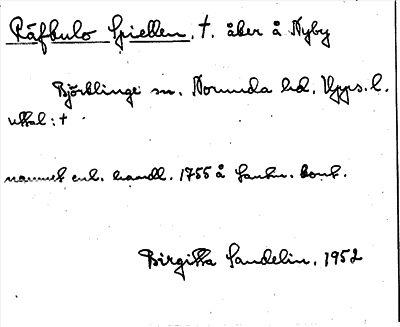 Räfkulo Spiellen, †. åker å Nyby
Björklinge sn. Norunda hd. Upps. l.
uttal: †
namnet enl. handl. 1755 å Lantm. kont.
Birgitta Sandelin, 1952